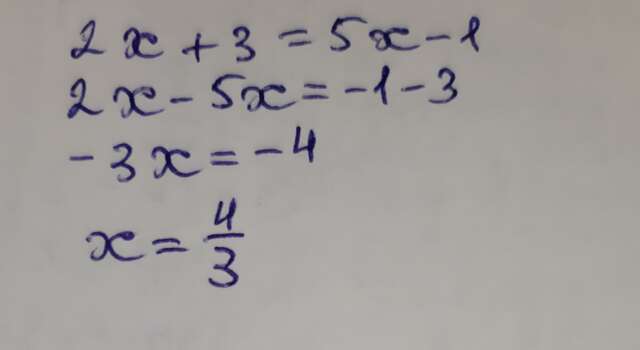 2x + 3 = 5x - 1
2x - 5x = -1 - 3
-3x = -4
x = 4/3